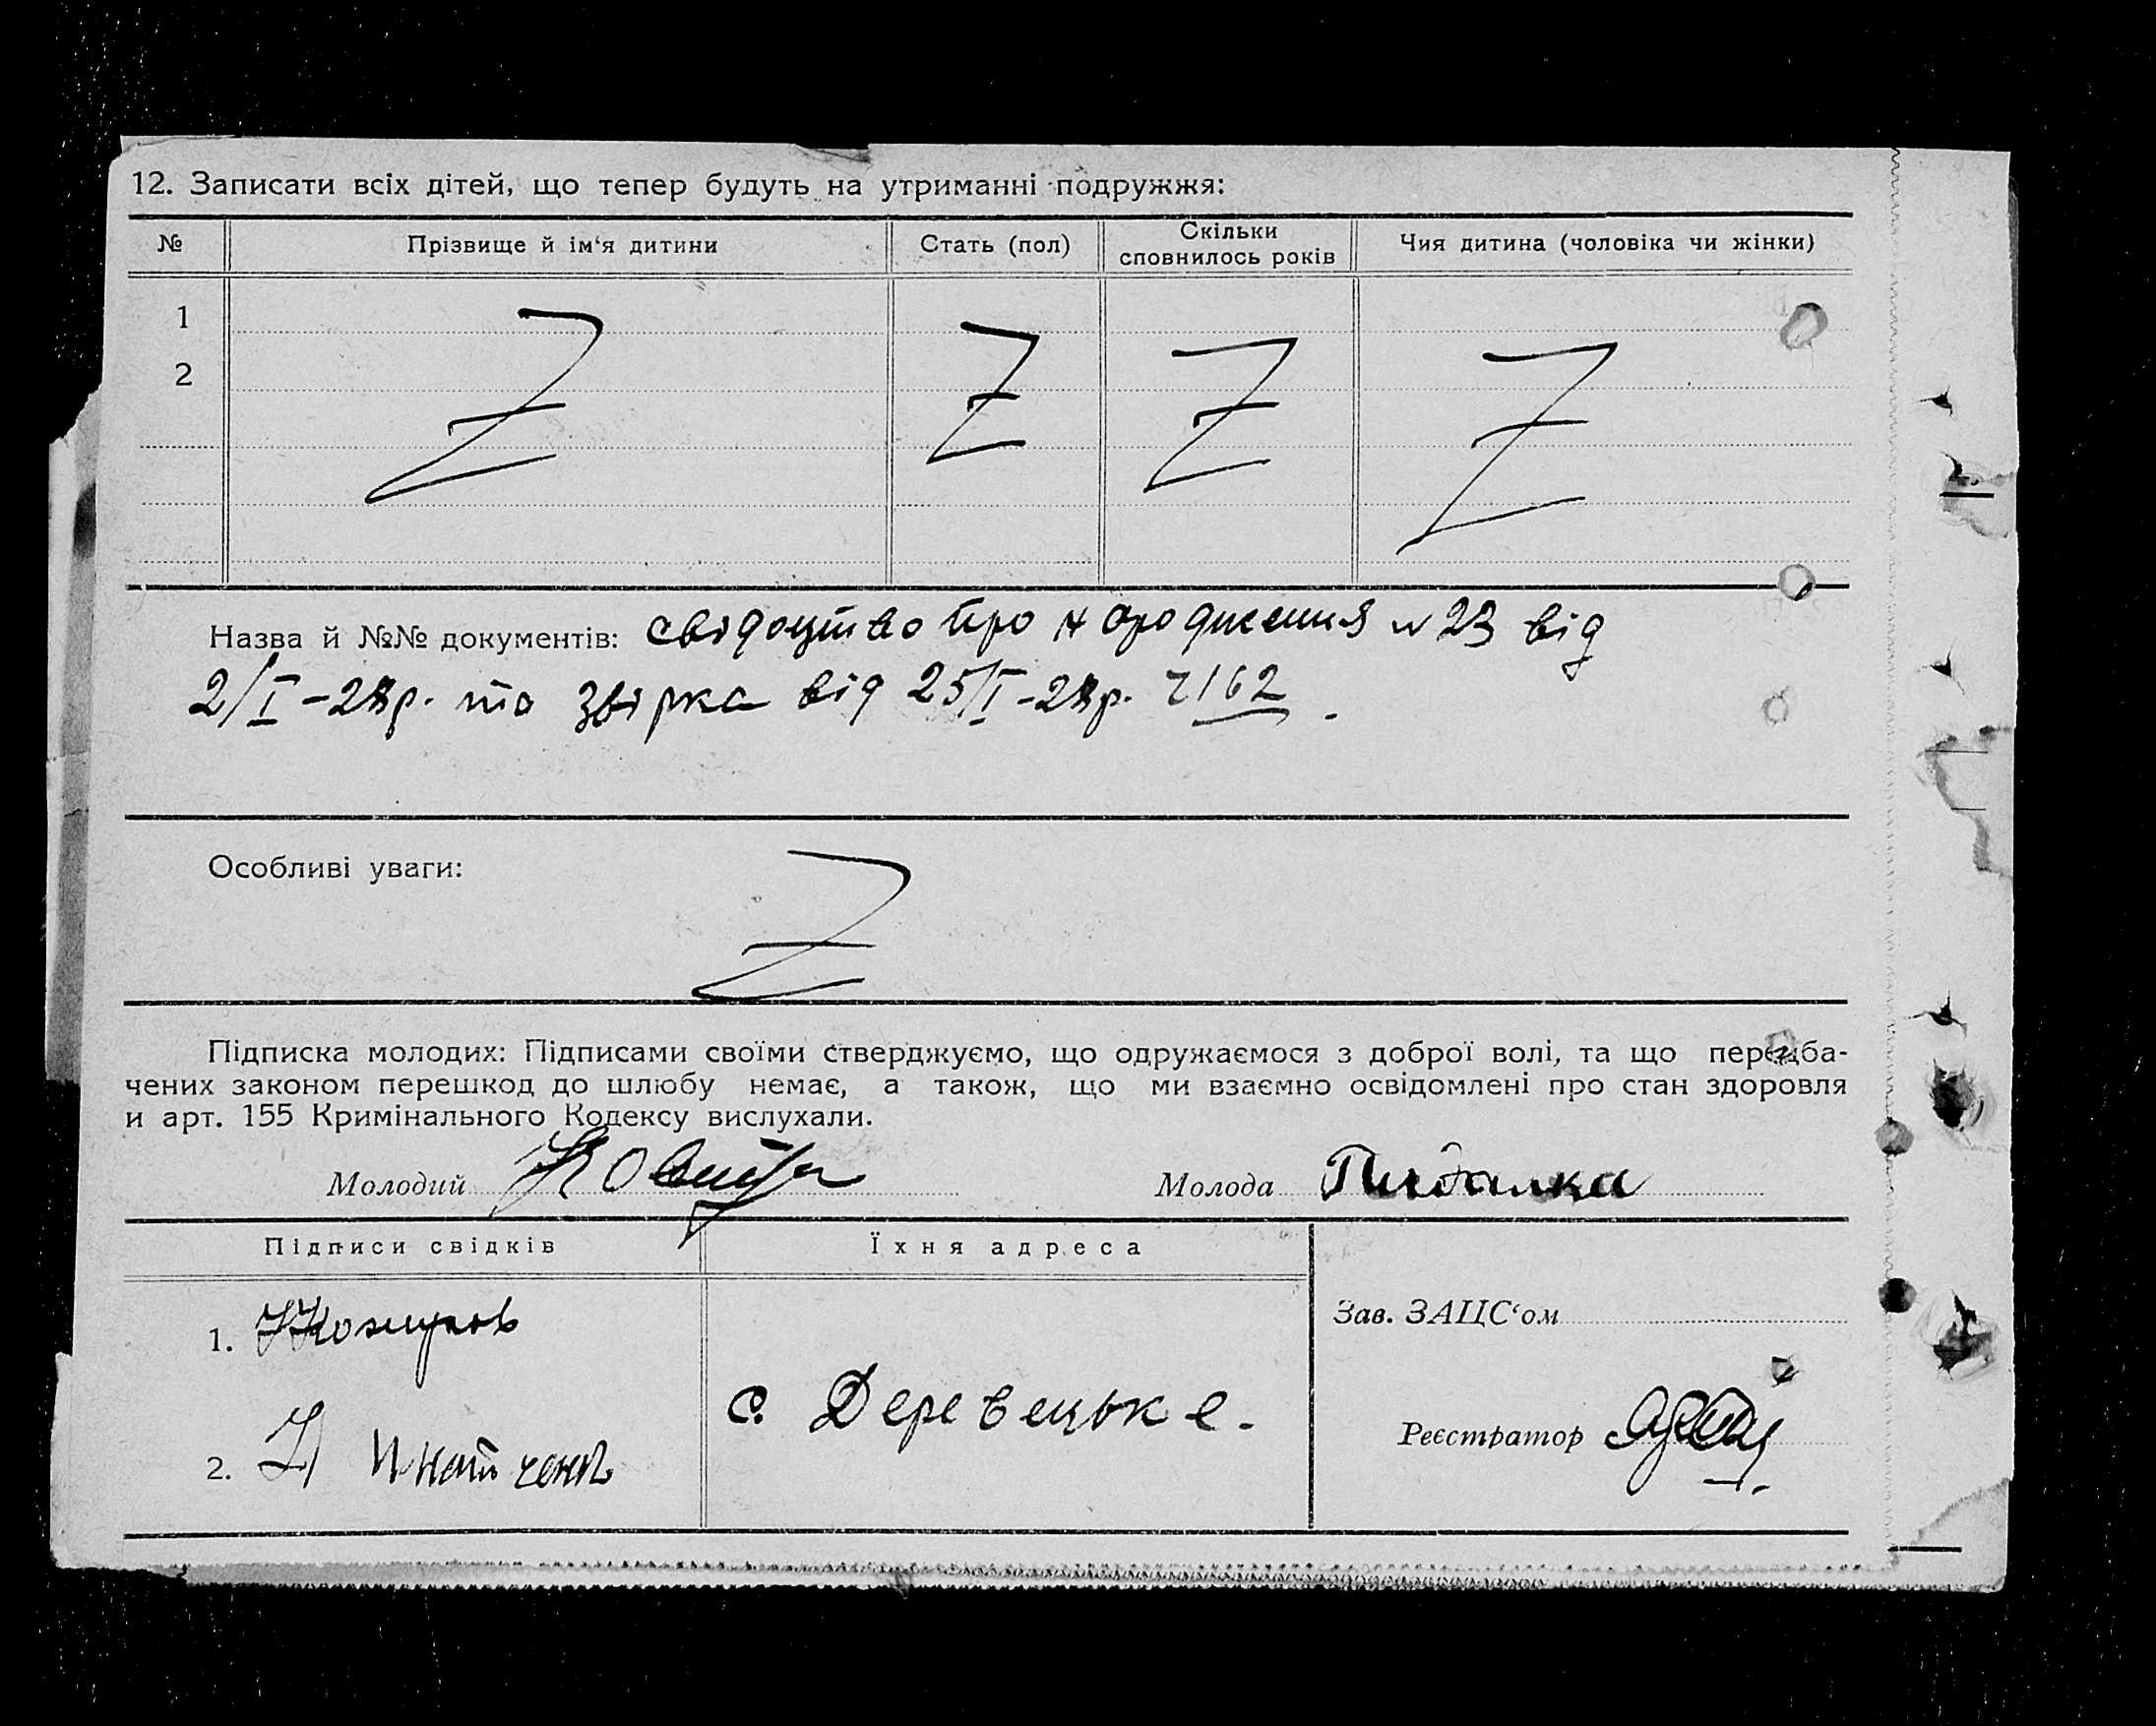 12. Записати всіх дітей, що тепер будуть на утриманні подружжя:
№ Прізвище й ім‘я дитини Стать (пол) Скільки сповнилось років Чия дитина (чоловіка чи жінки)
1 Z Z Z Z
2
Назва й №№ документів: свідоцтво про народження № 23 від
2/I – 28р. та звірка від 25/I – 28р. ч 162.
Особливі уваги:
Z
Підписка молодих: Підписами своїми стверджуємо, що одружаємося з доброї волі, та що передба-
чених законом перешкод до шлюбу немає, а також, що ми взаємно освідомлені про стан здоровля
и арт. 155 Кримінального Кодексу вислухали.
Молодий Молода
Підписи свідків Їхня адреса
1.
Зав. ЗАЦС‘ом
с. Деревецьке.
Реєстратор
2.